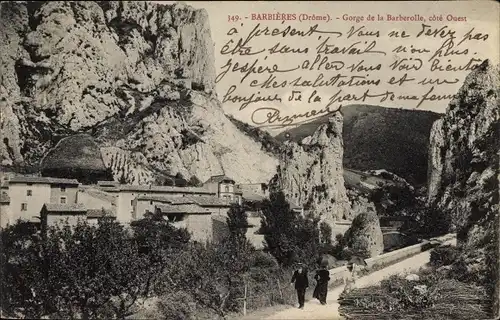 349. - BARBIÈRES (Drôme). - Gorge de la Barberolle, côté Ouest
à présent. Vous ne devez pas
être sans travail non plus.
J'espère aller vous voir bientôt
mes salutations et un
bonjour de la part de ma